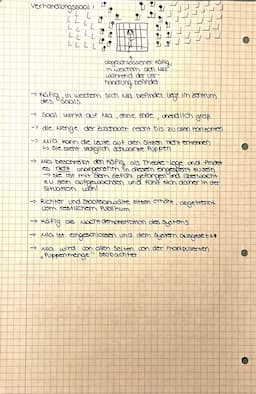 Verhandlungssaal:
abgeschlossener Käfig,
in welchem sich Mia
während der Ver-
handlung befindet
→ Käfig, in welchem sich Mia befindet, liegt im Zentrum
des Saals
→ Saal wirkt auf Mia „ohne Ende“, unendlich groß
→ die Menge der Zuschauer reicht bis zu allen Horizonten
→ Mia kann die Leute auf den Sitzen nicht erkennen
↳ sie sieht lediglich schwarze Puppen
→ Mia beschreibt den Käfig als Theater-loge und findet
es nicht unangenehm in diesem eingesperrt zu sein
→ sie ist mit dem Gefühl gefangen und überwacht
zu sein aufgewachsen und fühlt sich daher in der
Situation wohl
→ Richter und Staatsanwälte sitzen erhöht, abgetrennt
vom restlichen Publikum
→ Käfig als Machtdemonstration des Systems
→ Mia ist eingeschlossen und dem System ausgesetzt
→ Mia wird von allen Seiten von der manipulierten
„Puppenmenge“ beobachtet